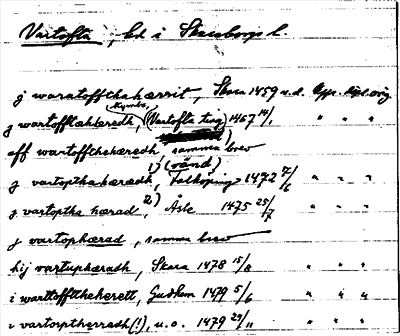 Vartofta, hd i Skaraborgs l.
j waratoffthahærrit, Skara 1459 u.d. Opp. dipl. orig
Kymbo,
j wartofftahæredh, (Vartofta ting) 1467 14/1 " " "
aff wartoffthehæredh samma brev
1) (vänd)
j vartopthahærædh, Falköping 1472 7/6 " " "
j vartoptha hærad, 2) Asle 1475 25/7 " " "
j vartophærad, samma brev
hij vartuphæradh, Skara 1478 15/8 " " "
i warttofftheherett, Gudhem 1479 5/6 " " "
i vartorptherradh (!), u.o. 1479 29/11 " " "